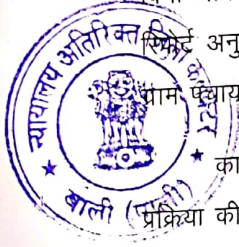 न्यायालय अतिरिक्त जिला कलक्टर
बाली (पाली)
रिपोर्ट अनु
ग्राम पंचाय
का
प्रक्रिया की